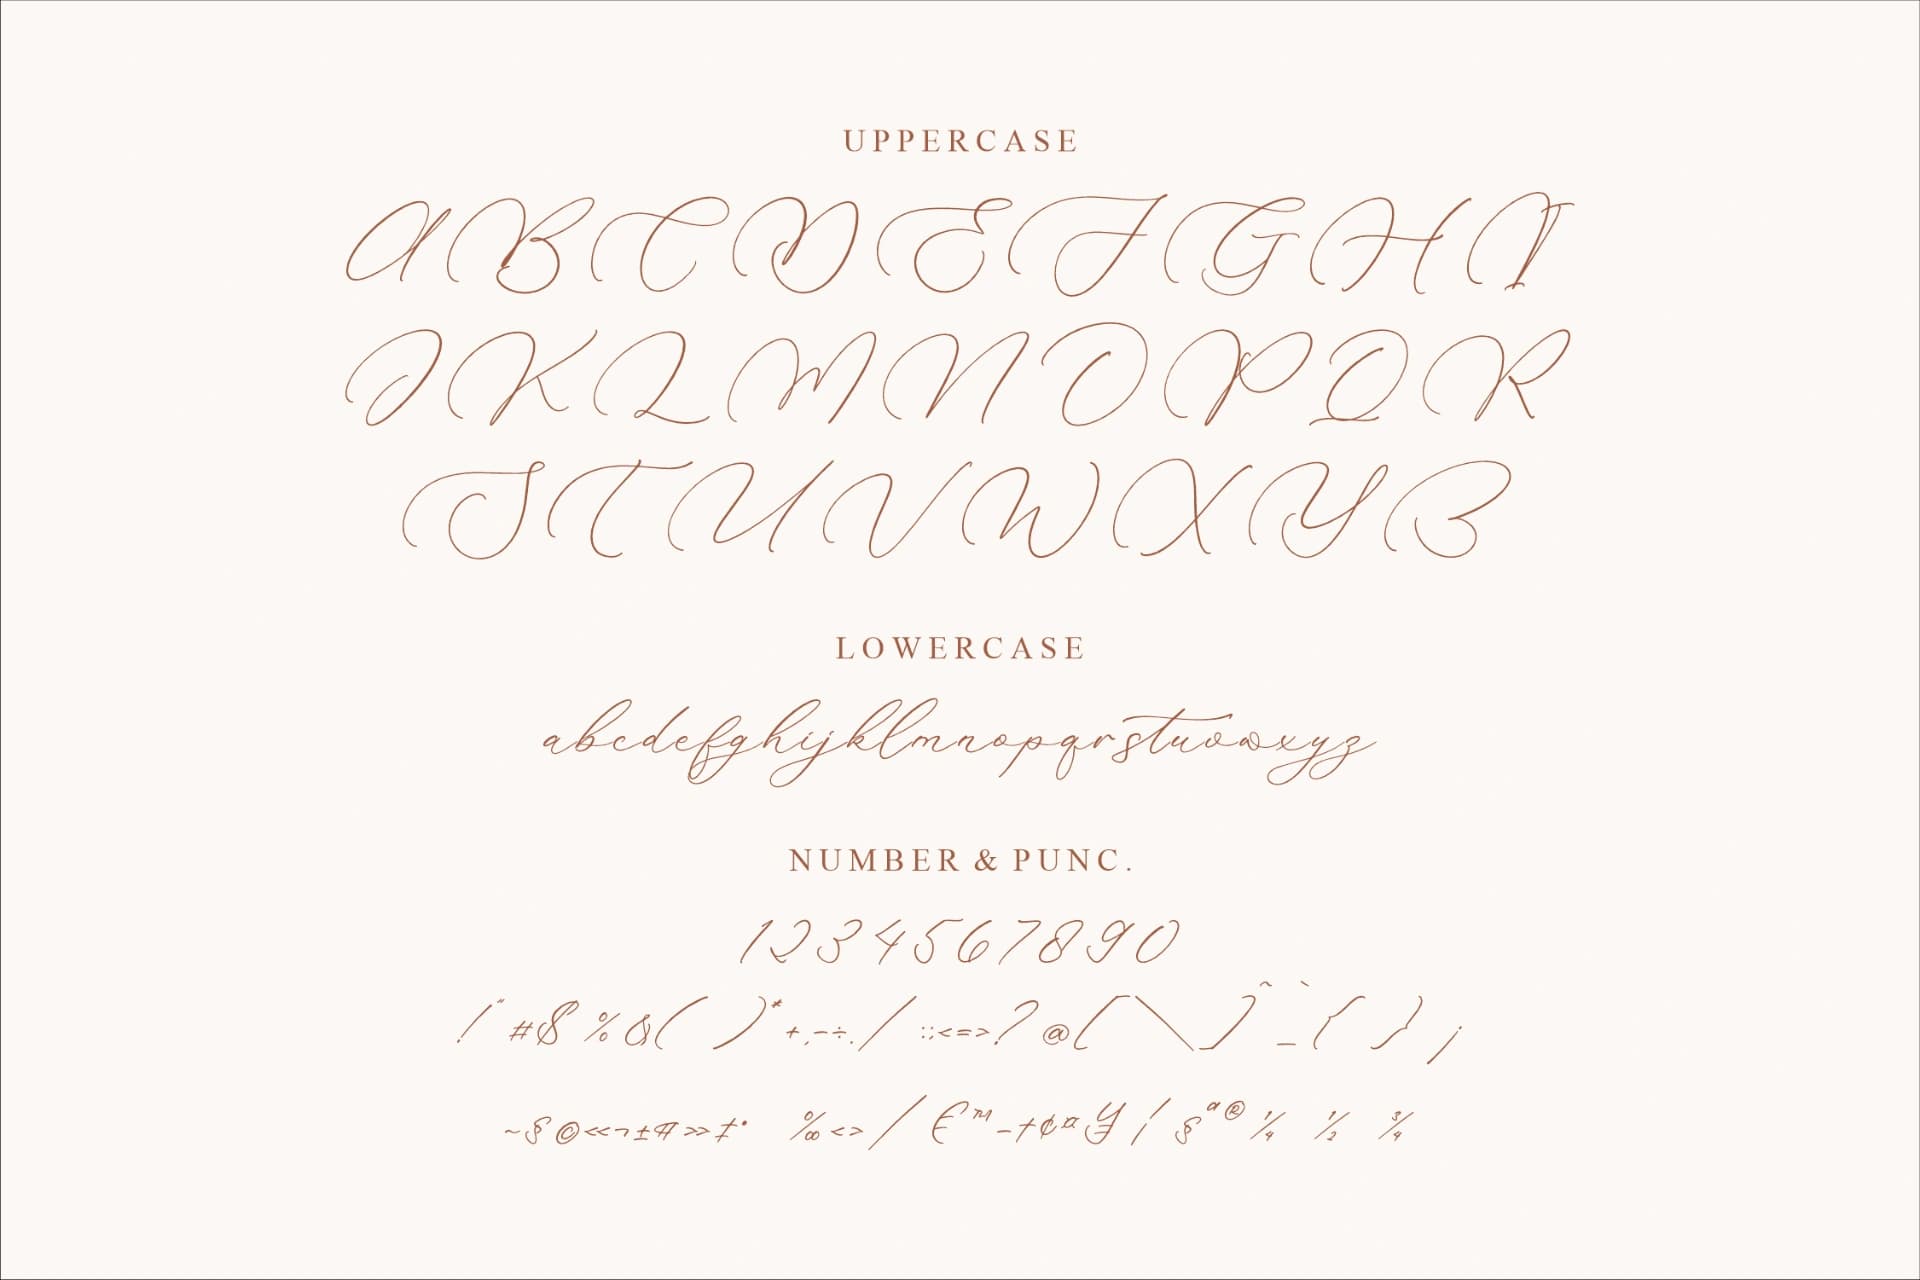 UPPERCASE
A B C D E F G H I
J K L M N O P Q R
S T U V W X Y Z
LOWERCASE
abcdefghijklmnopqrstuvwxyz
NUMBER & PUNC.
1 2 3 4 5 6 7 8 9 0
! " # $ % & ( ) * + , - ÷ . / : ; < = > ? @ [ \ ] ^ ` _ { } ¡
~ § © « ¬ ± ¶ » ‡ • ‰ < > / € ™ – † ¢ ¤ ¥ ¦ § ª ® ¼ ½ ¾